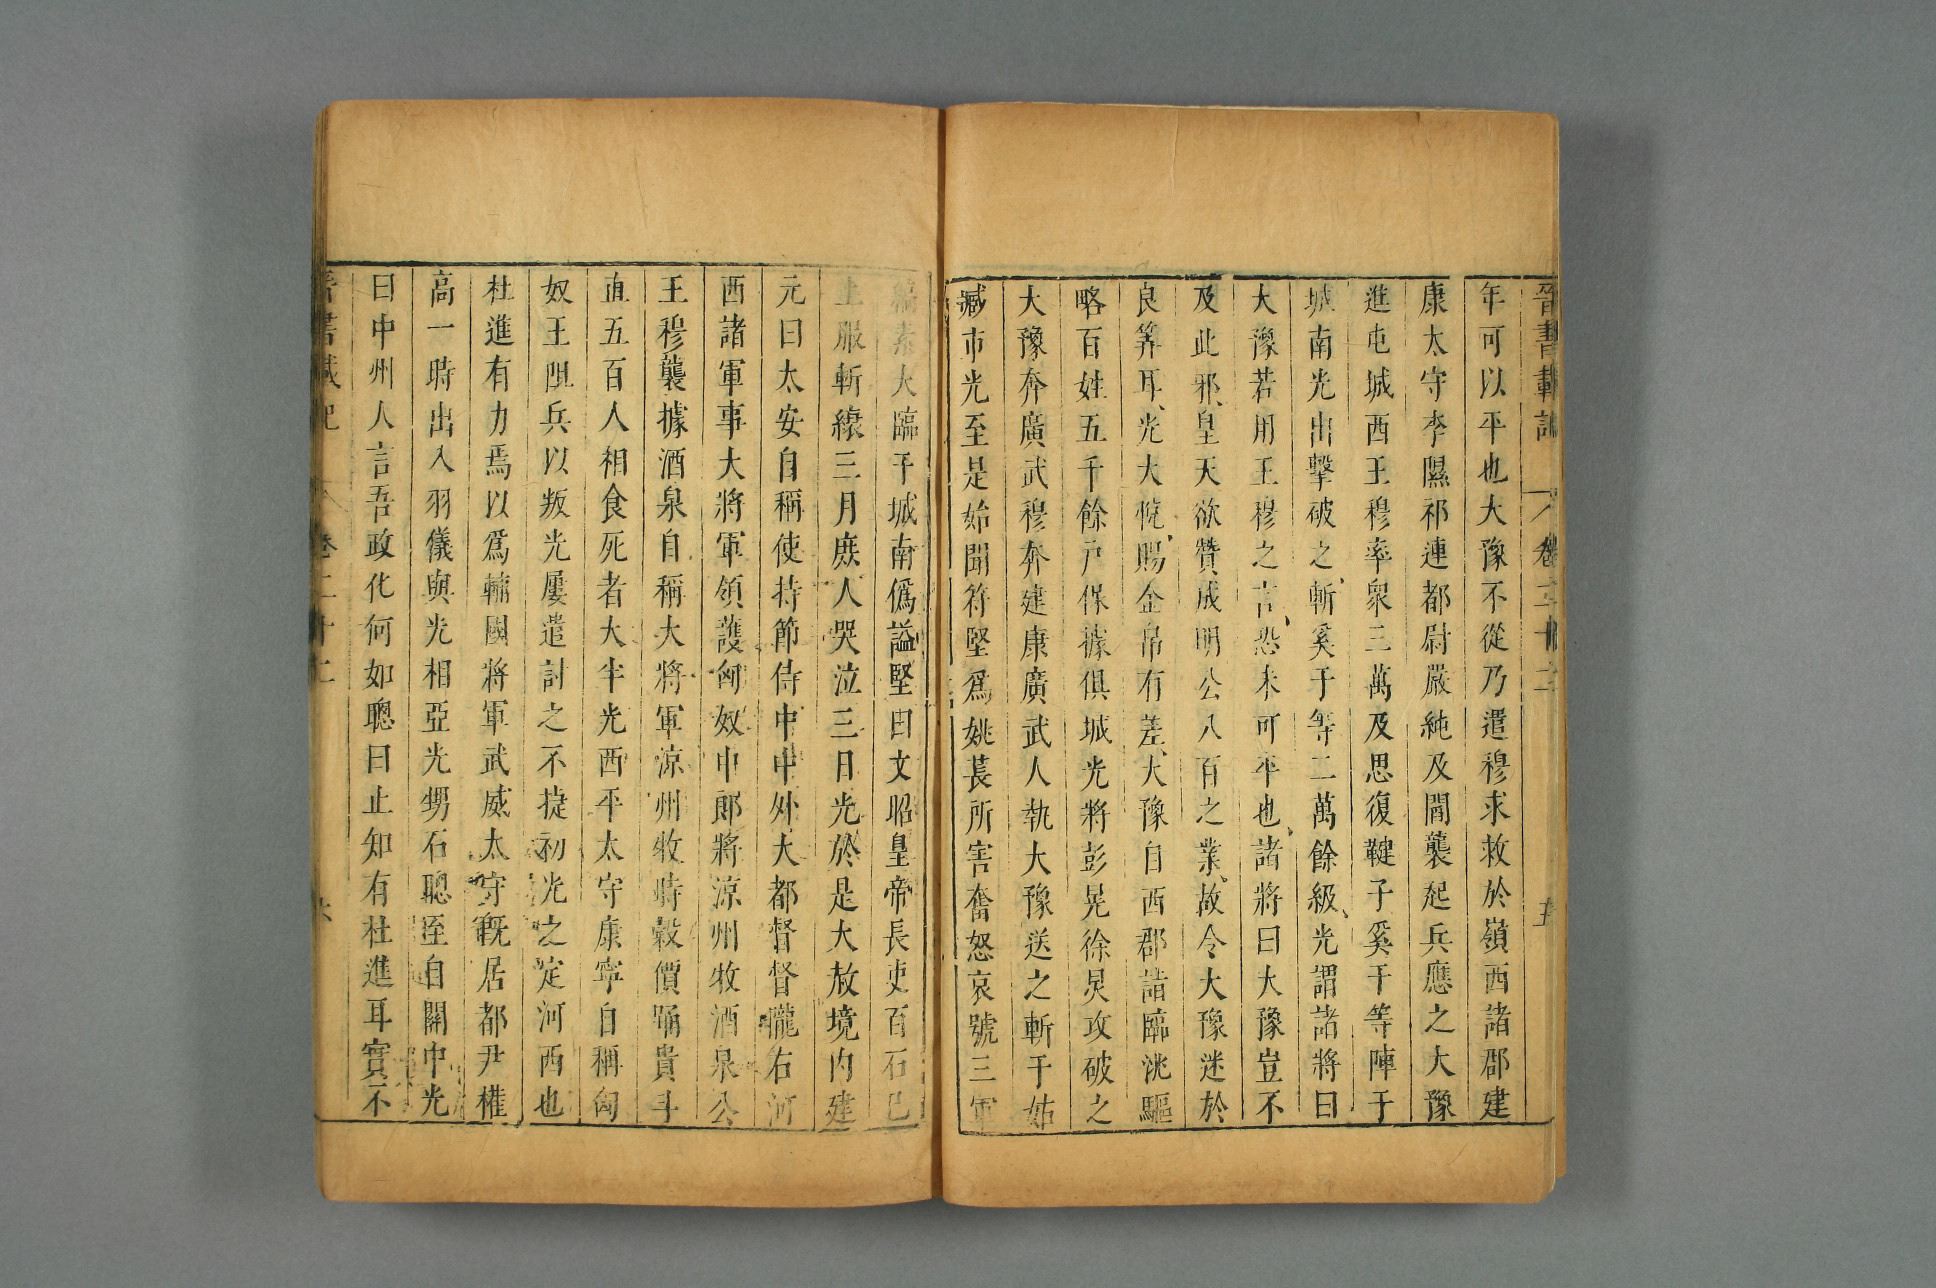 晉書載記 卷二十二 五
年可以平也大豫不從乃遣穆求救於嶺西諸郡建
康太守李隰祁連都尉嚴純及閻襲起兵應之大豫
進屯城西王穆率衆三萬及思復鞬子奚于等陣于
城南光出擊破之斬奚于等二萬餘級光謂諸將曰
大豫若用王穆之言恐未可平也諸將曰大豫豈不
及此邪皇天欲贊成明公八百之業故令大豫迷於
良筭耳光大悅賜金帛有差大豫自西郡詣臨洮驅
略百姓五千餘戶保據俱城光將彭晃徐炅攻破之
大豫奔廣武穆奔建康廣武人執大豫送之斬于姑
臧市光至是始聞苻堅爲姚萇所害奮怒哀號三軍
縞素大臨于城南僞謚堅曰文昭皇帝長吏百石已
上服斬縗三月庶人哭泣三日光於是大赦境內建
元曰太安自稱使持節侍中中外大都督督隴右河
西諸軍事大將軍領護匈奴中郎將涼州牧酒泉公
王穆襲據酒泉自稱大將軍涼州牧時穀價踊貴斗
直五百人相食死者大半光西平太守康寧自稱匈
奴王阻兵以叛光屢遣討之不捷初光之定河西也
杜進有力焉以爲輔國將軍武威太守既居都尹權
高一時出入羽儀與光相亞光甥石聰至自關中光
曰中州人言吾政化何如聰曰止知有杜進耳實不
晉書載記 卷二十二 六